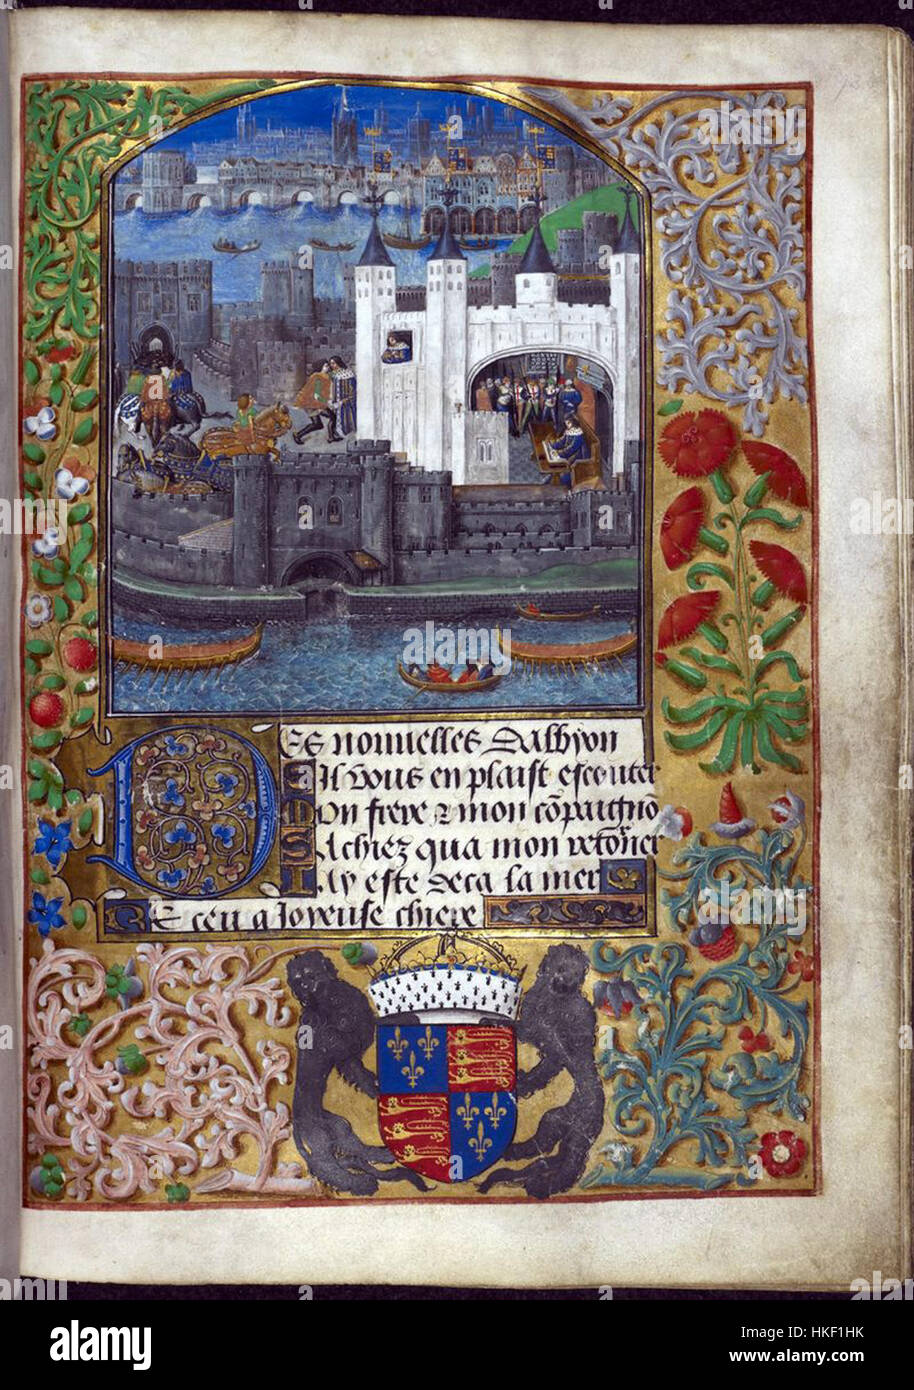 Des nouuelles dalbyon
Sil vous en plaist escouter
Mon frere & mon cōpaignō
Sachiez qua mon retorner
Jay este deca la mer
Receu a Joyeuse chiere
alamy
Image ID: HKF1HK
www.alamy.com